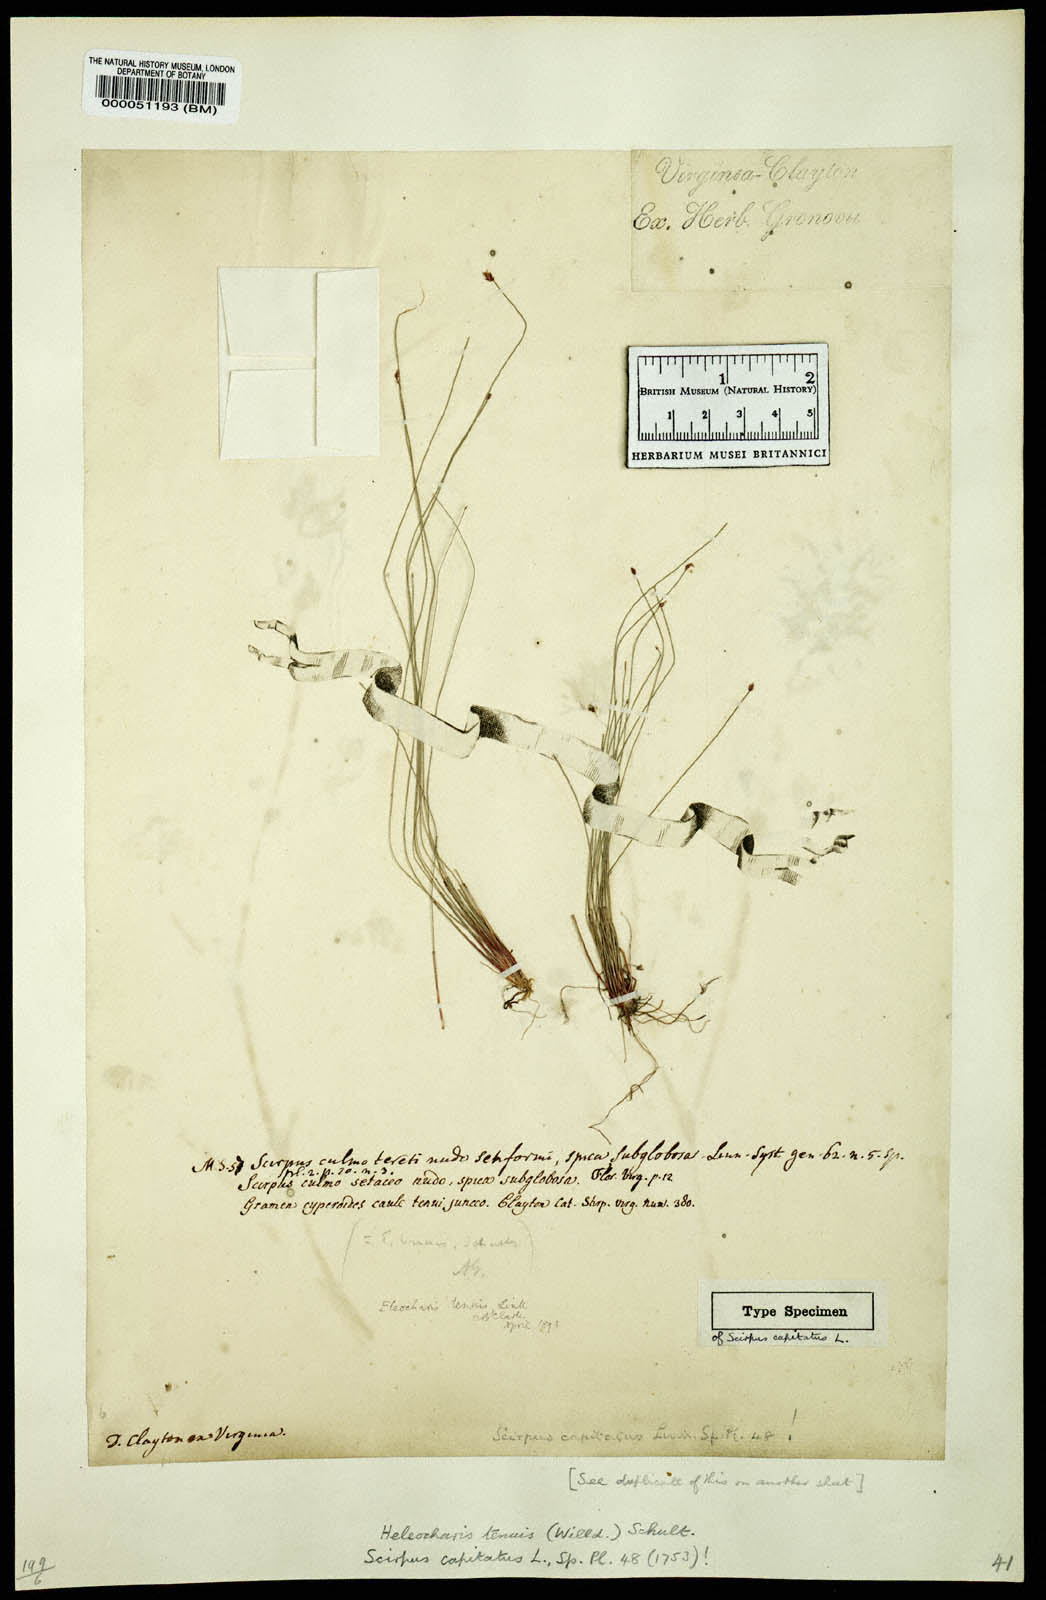 THE NATURAL HISTORY MUSEUM, LONDON
DEPARTMENT OF BOTANY
000051193 (BM)
Virginia Clayton
Ex. Herb. Gronovii
1 2
BRITISH MUSEUM (NATURAL HISTORY)
1 2 3 4 5
HERBARIUM MUSEI BRITANNICI
Scirpus culmo tereti nudo setiformi, spica subglobosa. Linn. Syst. gen. 62. n. 5. Sp.
pl. 2. p. 70. n. 3.
Scirpus culmo setaceo nudo, spica subglobosa. Flor. Virg. p. 12
Gramen cyperoides caule tenui junceo. Clayton Cat. Virg. Num. 380.
Eleocharis tenuis, Link
April
Type Specimen
of Scirpus capitatus L.
D. Clayton ex Virginia.
Scirpus capitatus Linn. Sp. Pl. 48 !
[See duplicate of this on another sheet]
Heleocharis tenuis (Willd.) Schult.
Scirpus capitatus L., Sp. Pl. 48 (1753)!
199/6
41